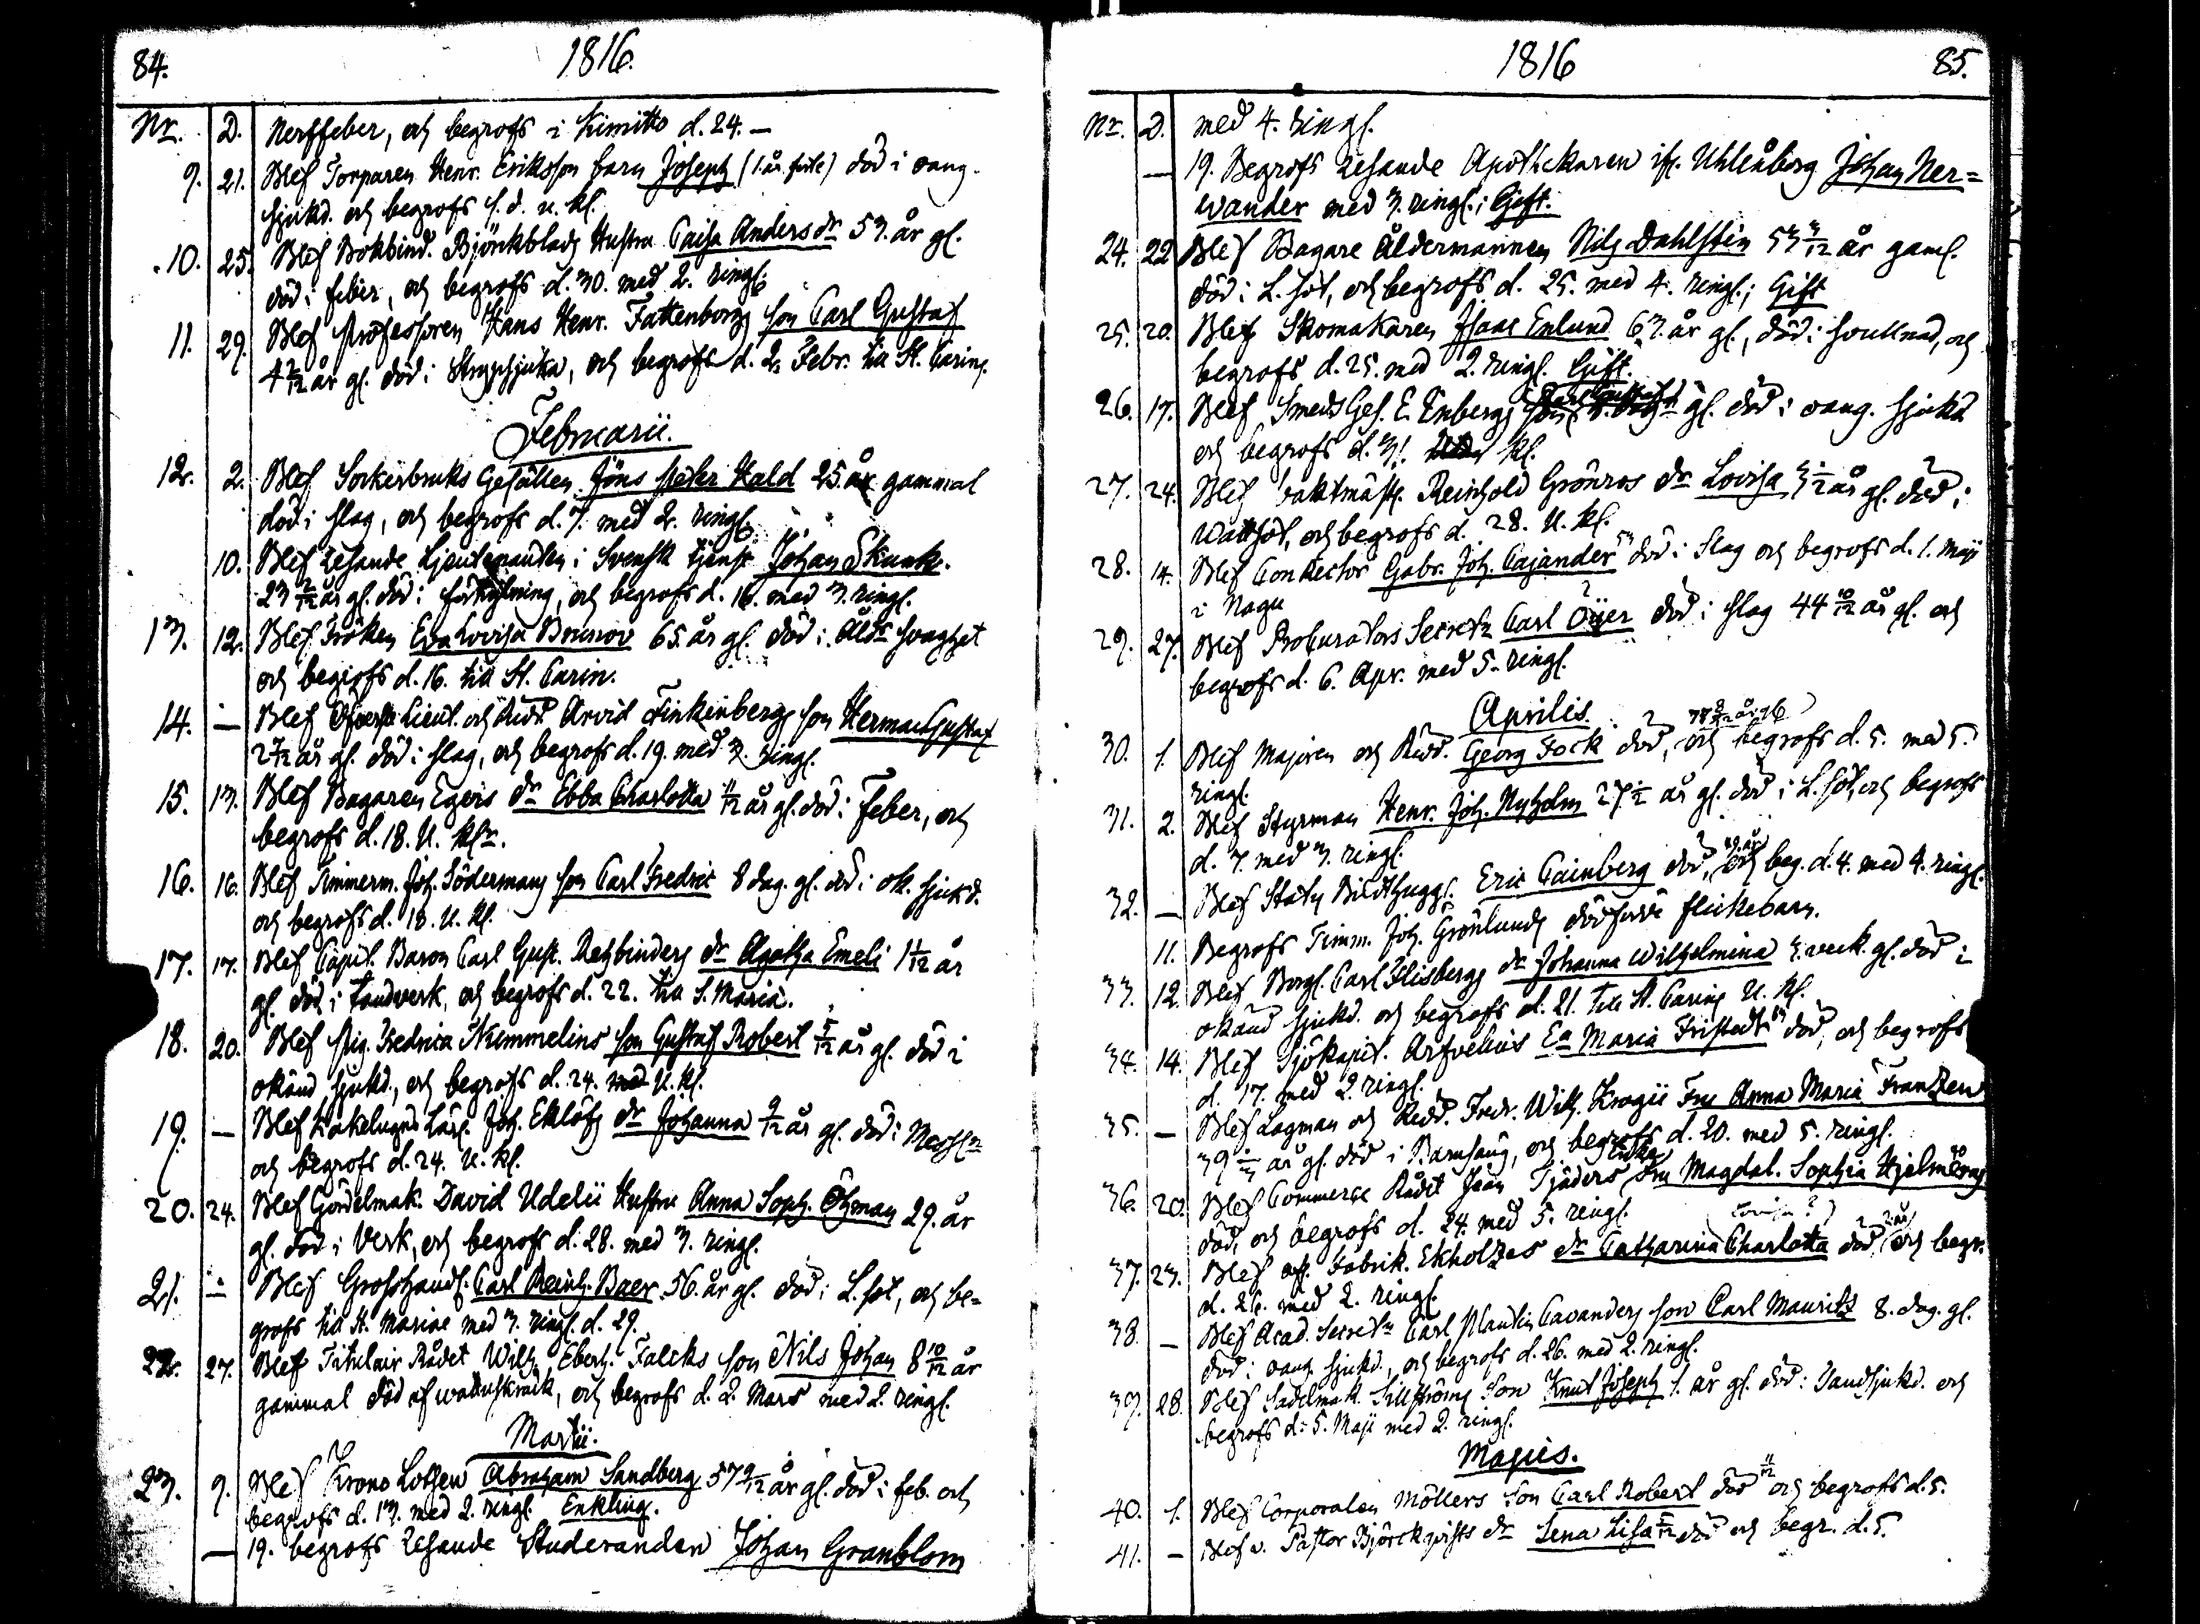 84.
1816.
Nr. D. Nerffeber, och begrofs i Kimitto d. 24. —
9. 21. Blef Torparen Henr. Eriksson barn Joseph (1. år fyle) död i oang.
sjukd. och begrofs s. d. u. kl.
10. 25. Blef Bokbind. Björkblads Hustru Caisa Anders dr 53. år gl.
död i feber, och begrofs d. 30. med 2. ringl.
11. 29. Blef Professoren Hans Henr. Fattenborgs son Carl Gustaf
4 /12 år gl. död i Strypsjuka, och begrofs d. 2. Febr. till St. Carins.
Februarii.
12. 2. Blef Sockerbruks Gesällen Jöns Peter Hald 25. år gammal
död i slag, och begrofs d. 7. med 2. ringl.
10. Blef Resande Lieutenanten i Svensk tjenst Johan Skunk.
23 2/12 år gl. död i förkylning, och begrofs d. 16. med 3. ringl.
13. 12. Blef Fröken Eva Lovisa Brunov 65. år gl. död i Åld:s svaghet
och begrofs d. 16. till St. Carin.
14. — Blef Öfverste Lieut. och Ridd. Arvid Finkenbergs son Herman Gustaf
2 /12 år gl. död i slag, och begrofs d. 19. med 3. ringl.
15. 13. Blef Bagaren Egers dr Ebba Charlotta 11/12 år gl. död i feber, och
begrofs d. 18. U. klr.
16. 16. Blef Timmerm. Joh. Södermans son Carl Fredric 8 dag. gl. död i ok. sjukd.
och begrofs d. 18. U. kl.
17. 17. Blef Capit. Baron Carl Gust. Rehbinders dr Agatha Emeli 1 1/12 år
gl. död i tandverk, och begrofs d. 22. till S. Maria.
18. 20. Blef Pig. Fredrica Kummelins son Gustaf Robert 5/12 år gl. död i
okänd sjukd., och begrofs d. 24. med U. kl.
19. — Blef Kakelugns Lärl. Joh. Eklöfs dr Johanna 9/12 år gl. död i Messl:n
och begrofs d. 24. U. kl.
20. 24. Blef Gördelmak. David Udelii Hustru Anna Soph. Öhman 29. år
gl. död i Verk, och begrofs d. 28. med 3. ringl.
21. — Blef Grosshandl. Carl Reinh. Baer 56. år gl. död i L. sot, och be=
grofs till St. Mariae med 3. ringl. d. 29.
22. 27. Blef Titulair Rådet Wilh. Eberh. Falcks son Nils Johan 8 10/12 år
gammal död af wattuskräck, och begrofs d. 2. Mars med 2. ringl.
Martii.
23. 9. Blef Krono Lotsen Abraham Sandberg 57 9/12 år gl. död i feb. och
begrofs d. 13. med 2. ringl. Enkling.
— 19. begrofs Resande Studeranden Johan Granblom
1816
85.
Nr. D. med 4. ringl.
— 19. Begrofs Resande Apothekaren ifr. Uhleåborg Johan Ner=
wander med 3. ringl.; Gift.
24. 22 Blef Bagare Åldermannen Nils Dahlsten 53 3/12 år gaml.
död i L. sot, och begrofs d. 25. med 4. ringl.; Gift
25. 20. Blef Skomakaren Isaac Enlund 63. år gl., död i svullnad, och
begrofs d. 25. med 2. ringl. Gift.
Carl Gustaf
26. 17. Blef SmedsGes. E. Enbergs son gl. död i oang. sjukd
och begrofs d. 31. kl.
27. 24. Blef vaktmäst. Reinhold Grönros dr Lovisa år gl. död i
Wattsot, och begrofs d. 28. U. kl.
28. 14. Blef Con Rector Gabr. Joh. Cajander 53 död i Slag och begrofs d. 1. Maji
i Nagu
29. 27. Blef Procurators Secret:n Carl Öijer död i slag 44 10/12 år gl. och
begrofs d. 6. Apr. med 5. ringl.
Aprilis.
30. 1. Blef Majoren och Ridd. Georg Fock död, och begrofs d. 5. med 5.
ringl.
31. 2. Blef Styrman Henr. Joh. Nyholm 27 år gl. död i L. sot, och begrofs
d. 7. med 3. ringl.
32. — Blef Stats Bildthugg. Eric Cainberg död, och beg. d. 4. med 4. ringl.
11. Begrofs Timm. Joh. Grönlunds dödfödde flickebarn.
33. 12. Blef Borgl. Carl Flisbergs dr Johanna Wilhelmina 3. veck. gl. död i
okänd sjukd. och begrofs d. 21. till St. Carins U. kl.
34. 14. Blef Sjökapit. Arfvelius Ea Maria Fristedt död, och begrofs
d. 17. med 2. ringl.
35. — Blef Lagman och Ridd. Fredr. Wilh. Krogii Fru Anna Maria Franzen
39 år gl. död i Barnsäng, och begrofs d. 20. med 5. ringl.
Enka
36. 20. Blef Commerce Rådet Joan Tjäders Fru Magdal. Sophia Hjelmerus
död, och begrofs d. 24. med 5. ringl.
(Lovisa?)
37. 23. Blef Fabrik. Ekholzes dr Catharina Charlotta död, och begr.
d. 26. med 2. ringl.
38. — Blef Acad. Secret:n Carl Mauritz Cavanders son Carl Mauritz 8. dag. gl.
död i oang. sjukd., och begrofs d. 26. med 2. ringl.
39. 28. Blef Sadelmak. Sillströms son Knut Joseph 1. år gl. död i Tandsjukd. och
begrofs d. 5. Maji med 2. ringl.
Majus.
40. 1. Blef Corporalen Möllers son Carl Robert död 11/12 och begrofs d. 5.
41. — Blef v. Pastor Björckqvists dr Lena Lisa död och begr. d. 5.